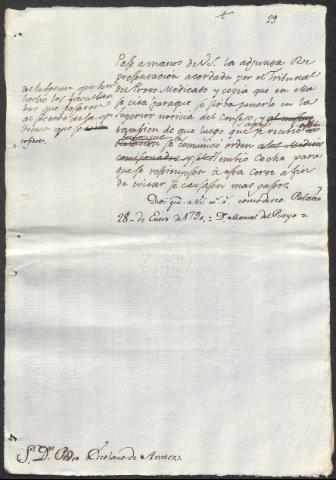 29
Paso a manos de VS. la adjunta Re
presentacion acordada por el Tribunal
del Proto Medicato y copia que en ella
se cita para que se sirva ponerlo en la
superior noticia del Consejo, y
tambien de que luego que se recivió
se comunicó orden a los Medicos
embio Coche para
que se restituyesen a esta Corte a fin
de evitar se causasen mas gastos.
Dios gue. a VS. m. a. como deseo. Palacio
28 de Enero de 1790. = Dr. Manuel del
el Informe que han
hecho los facultati
vos que pasaron
refiere.
Sr. Dn. Pedro Escolano de Arrieta